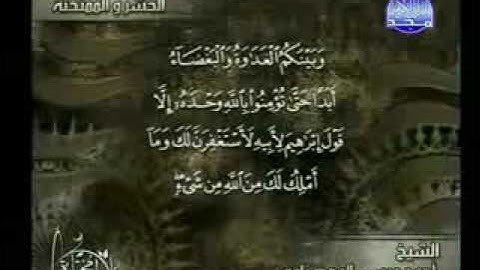 الحشر والممتحنة
مجد
وَبَيْنَكُمُ ٱلْعَدَاوَةُ وَٱلْبَغْضَآءُ
أَبَدًا حَتَّىٰ تُؤْمِنُوا۟ بِٱللَّهِ وَحْدَهُۥٓ إِلَّا
قَوْلَ إِبْرَٰهِيمَ لِأَبِيهِ لَأَسْتَغْفِرَنَّ لَكَ وَمَآ
أَمْلِكُ لَكَ مِنَ ٱللَّهِ مِن شَىْءٍۖ
الشيخ